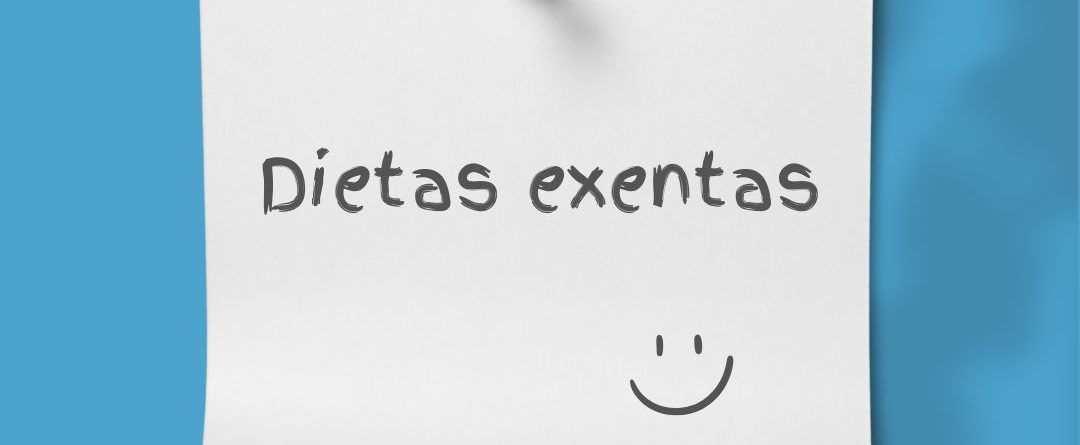 Dietas exentas